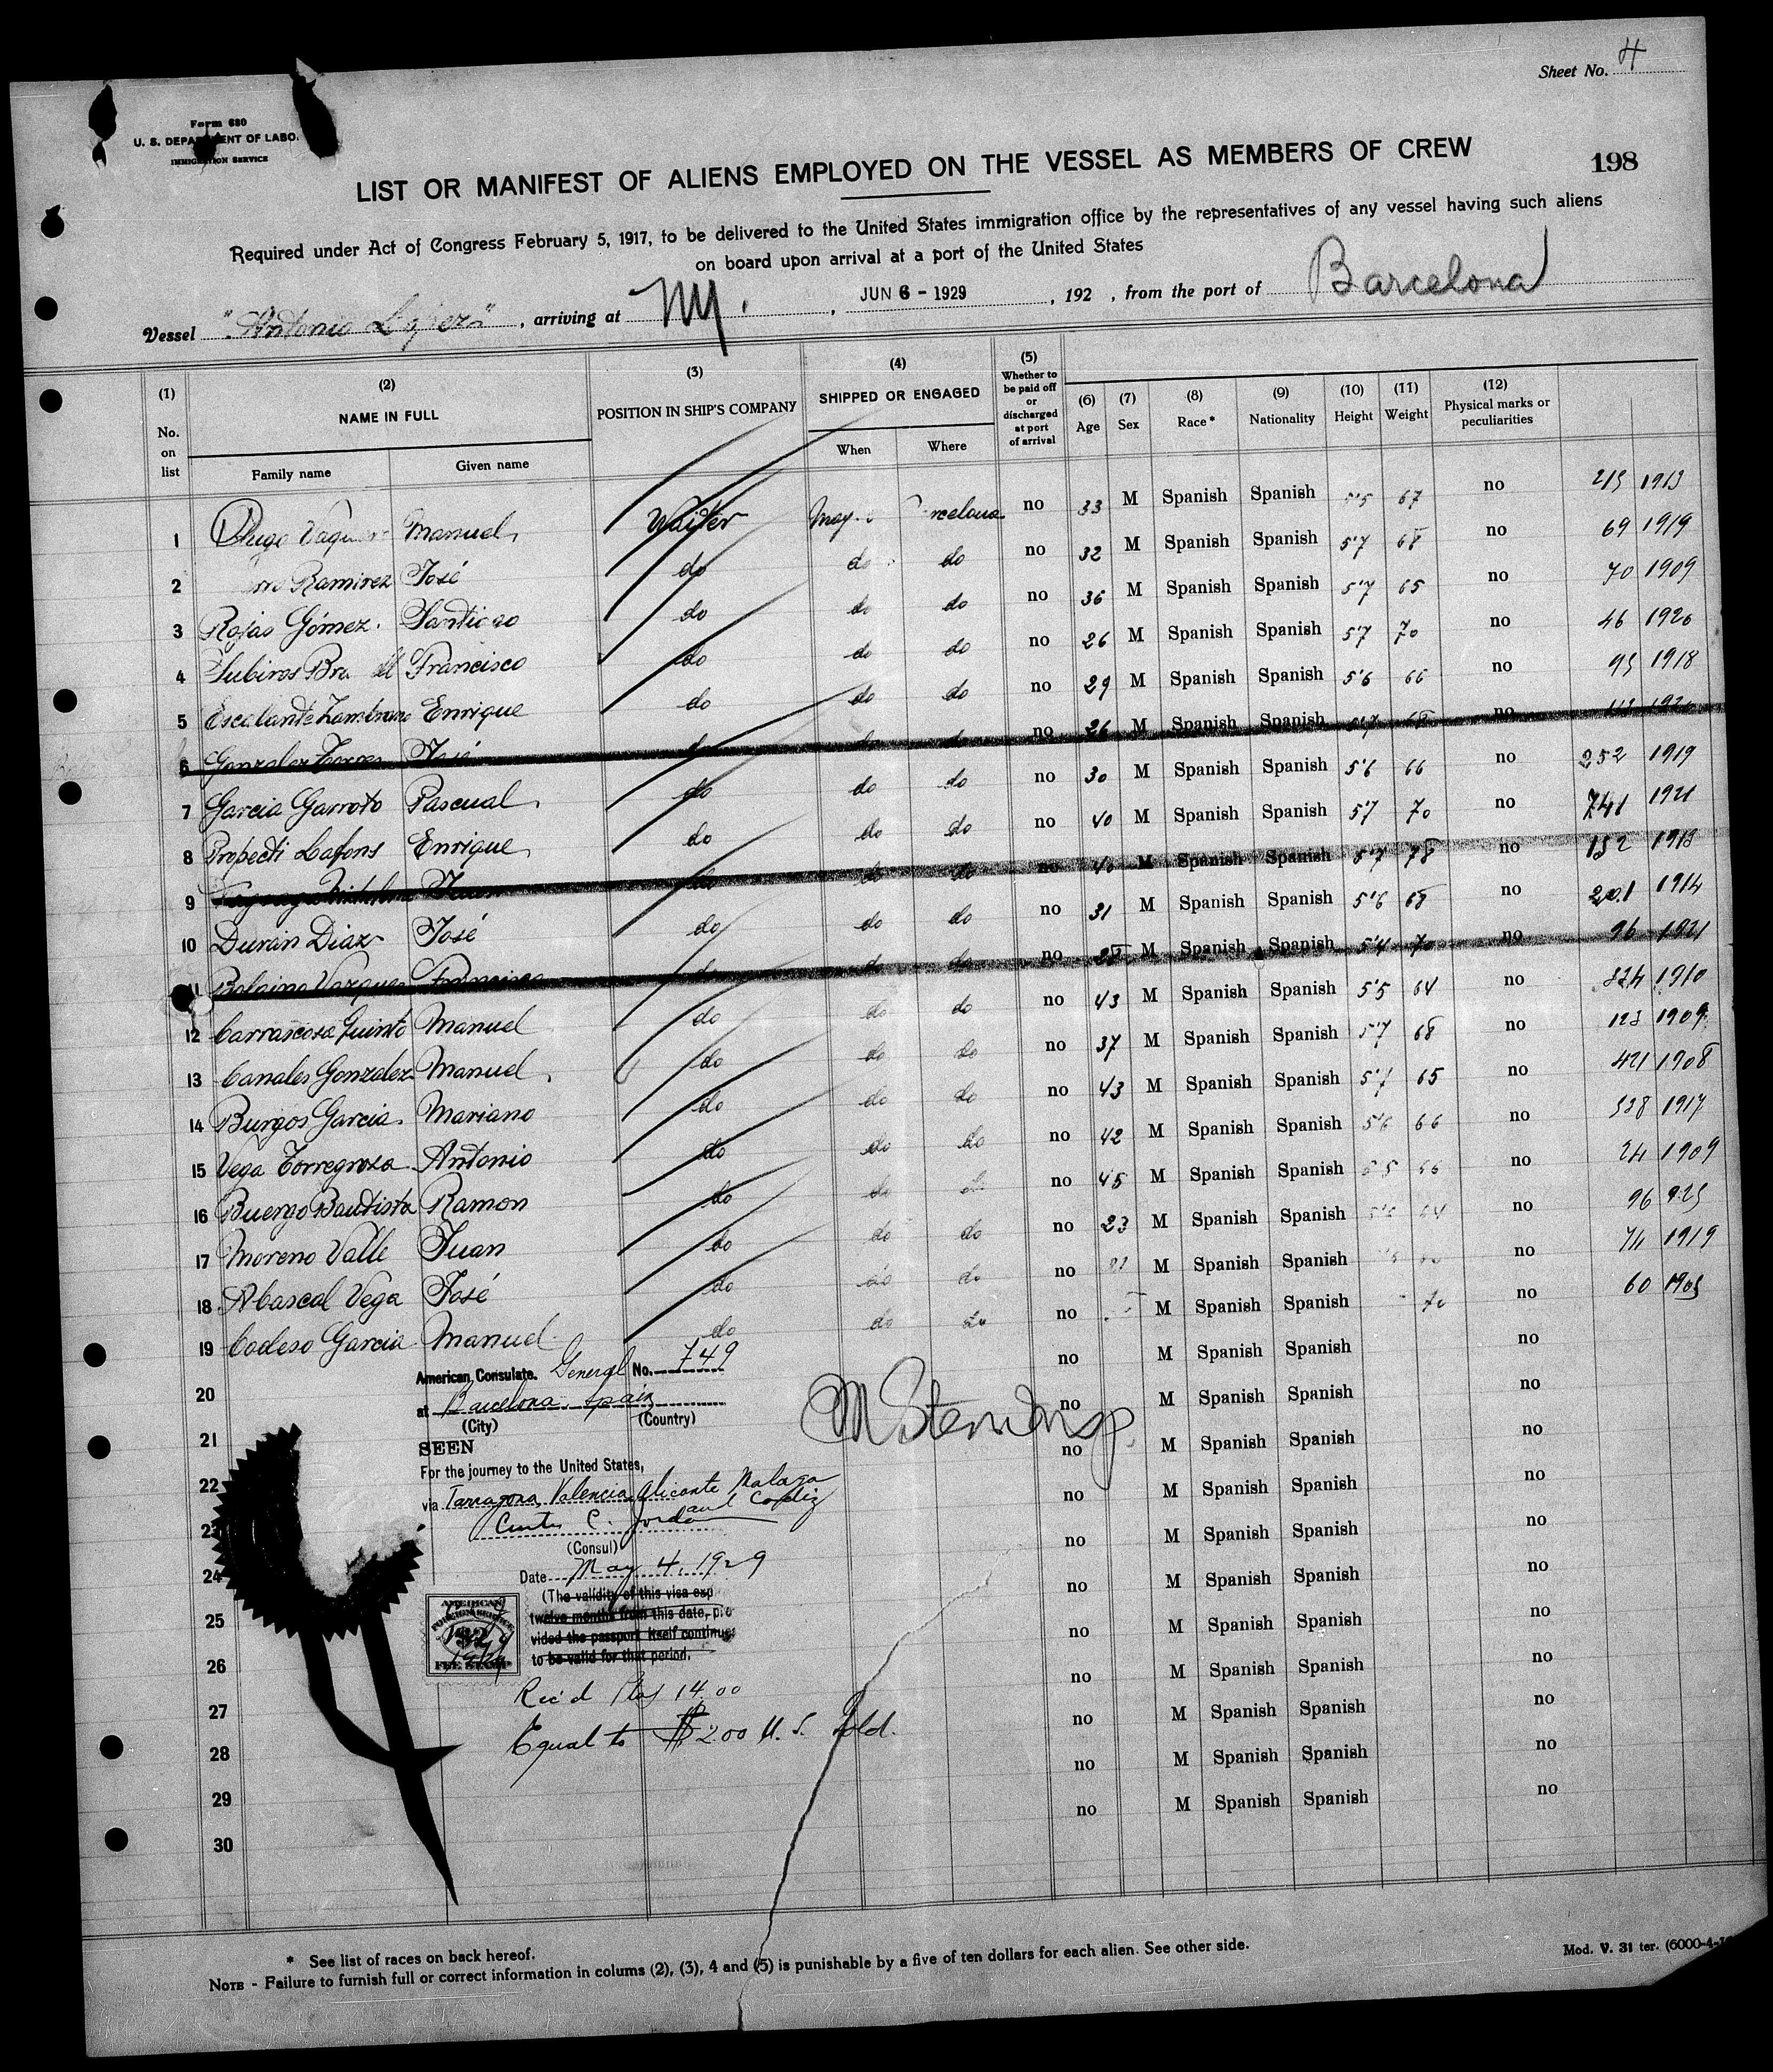 Sheet No. 4
Form 680
U. S. DEPARTMENT OF LABO
IMMIGRATION SERVICE
198
LIST OR MANIFEST OF ALIENS EMPLOYED ON THE VESSEL AS MEMBERS OF CREW
Required under Act of Congress February 5, 1917, to be delivered to the United States immigration office by the representatives of any vessel having such aliens
on board upon arrival at a port of the United States
Vessel "Antonio Lopez", arriving at NY. , JUN 6 - 1929 , 192 , from the port of Barcelona
(1) No. on list (2) NAME IN FULL Family name Given name (3) POSITION IN SHIP'S COMPANY (4) SHIPPED OR ENGAGED When Where (5) Whether to be paid off or discharged at port of arrival (6) Age (7) Sex (8) Race* (9) Nationality (10) Height (11) Weight (12) Physical marks or peculiarities
1 Manuel Waiter May Barcelona no 33 M Spanish Spanish 5'5 67 no 215 1913
2 Ramirez José do do do no 32 M Spanish Spanish 5'7 68 no 69 1919
3 Rojas Gómez Santiago do do do no 36 M Spanish Spanish 5'7 65 no 70 1909
4 Francisco do do do no 26 M Spanish Spanish 5'7 70 no 46 1920
5 Escalante Zambrano Enrique do do do no 29 M Spanish Spanish 5'6 66 no 95 1918
6 Gonzalez Torres José do do do no 26 M Spanish Spanish 5'7 68 no
7 Garcia Garroto Pascual do do do no 30 M Spanish Spanish 5'6 66 no 252 1919
8 Propecti Lafons Enrique do do do no 40 M Spanish Spanish 5'7 70 no 741 1921
9 Juan do do do no 40 M Spanish Spanish 5'7 78 no 152 1913
10 Durán Diaz José do do do no 31 M Spanish Spanish 5'6 68 no 201 1914
11 Bolaino Vazquez Francisco do do do no M Spanish Spanish 5'4 70 no 96 1921
12 Carrascosa Quinto Manuel do do do no 43 M Spanish Spanish 5'5 64 no 324 1910
13 Canales Gonzalez Manuel do do do no 37 M Spanish Spanish 5'7 68 no 123 1909
14 Burgos Garcia Mariano do do do no 43 M Spanish Spanish 5'7 65 no 421 1908
15 Vega Torregrosa Antonio do do do no 42 M Spanish Spanish 5'6 66 no 538 1917
16 Buergo Bautista Ramon do do do no 45 M Spanish Spanish 5'5 66 no 24 1909
17 Moreno Valle Juan do do do no 23 M Spanish Spanish 5'6 64 no 96 925
18 Abascal Vega José do do do no M Spanish Spanish no 74 1919
19 Codeso Garcia Manuel do do do no M Spanish Spanish 70 no 60 1905
20 no M Spanish Spanish no
21 no M Spanish Spanish no
22 no M Spanish Spanish no
23 no M Spanish Spanish no
24 no M Spanish Spanish no
25 no M Spanish Spanish no
26 no M Spanish Spanish no
27 no M Spanish Spanish no
28 no M Spanish Spanish no
29 no M Spanish Spanish no
30 no M Spanish Spanish no
American Consulate General No. 749
at Barcelona, Spain
(City) (Country)
SEEN
For the journey to the United States,
via Tarragona, Valencia, Alicante Malaga
and Cadiz
Curtis C. Jordan
(Consul)
Date May 4, 1929
(The validity of this visa exp
twelve months from this date, pro
vided the passport itself continues
to be valid for that period.
AMERICAN
FOREIGN SERVICE
FEE STAMP
Rec'd Ptas 14.00
Equal to $2.00 U. S. Gold.
* See list of races on back hereof.
NOTE - Failure to furnish full or correct information in colums (2), (3), 4 and (5) is punishable by a five of ten dollars for each alien. See other side.
Mod. V. 31 ter. (6000-4-